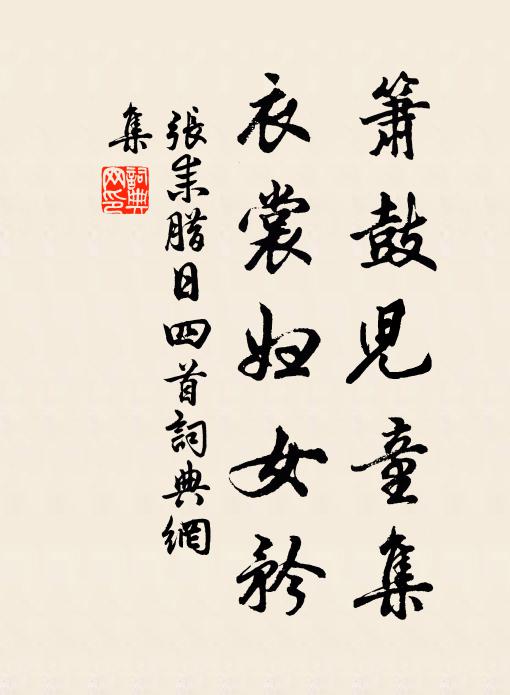 簫鼓兒童集
衣裳婦女矜
張耒臘日四首詞典網
集
詞典網印